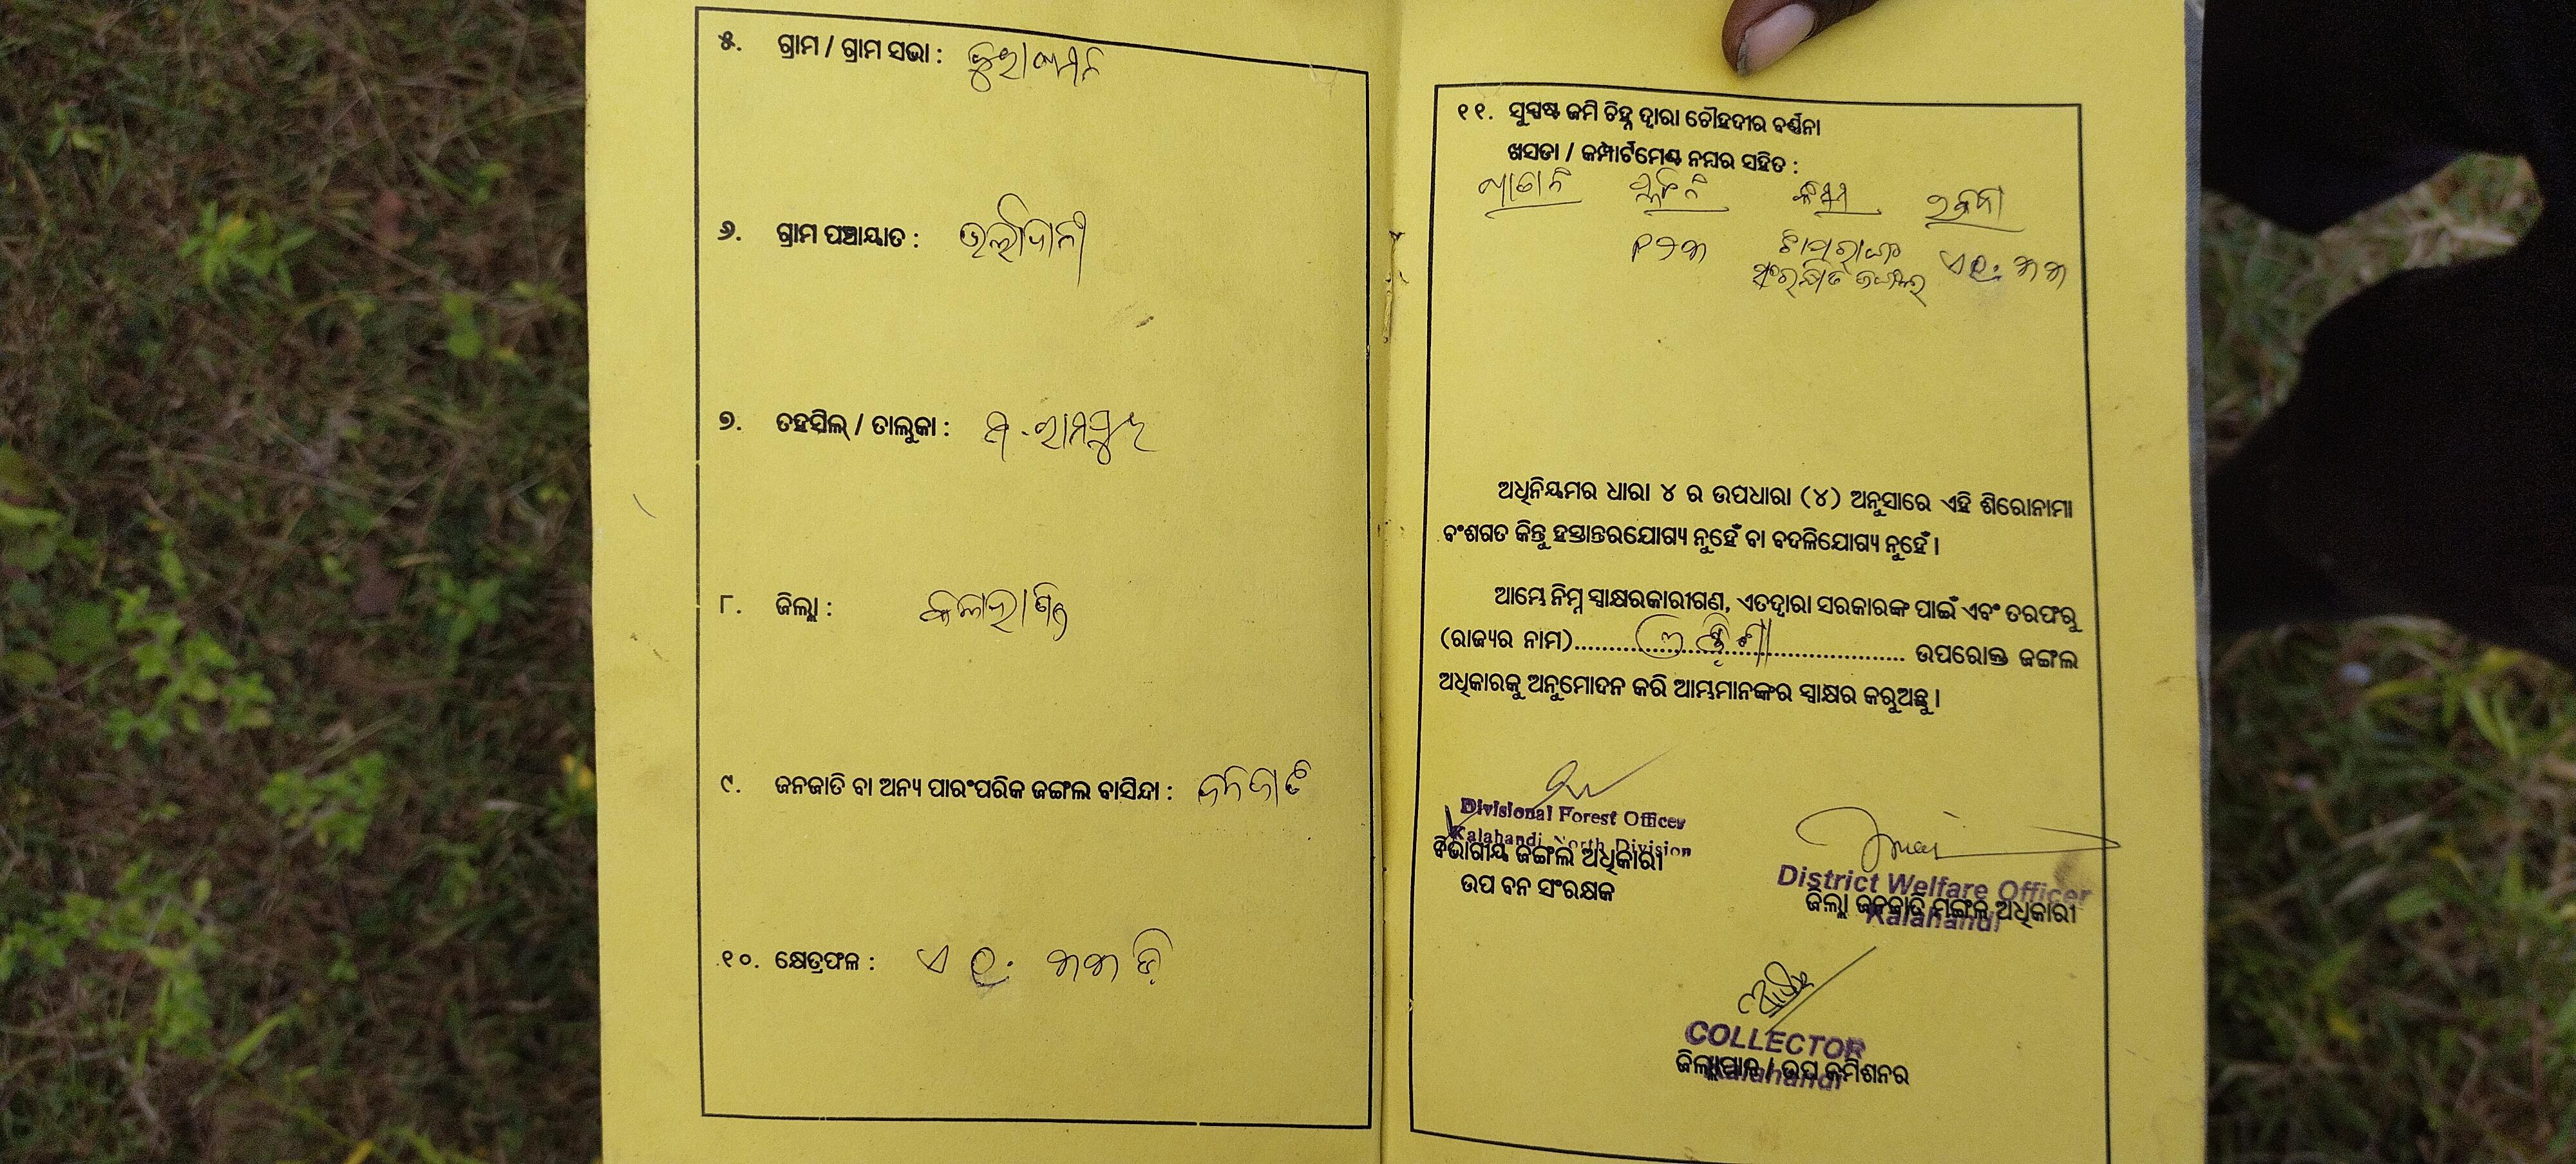 ୫. ଗ୍ରାମ / ଗ୍ରାମ ସଭା :
୬. ଗ୍ରାମ ପଞ୍ଚାୟାତ :
୭. ତହସିଲ୍ / ତାଲୁକା : ଥ. ରାମପୁର
୮. ଜିଲ୍ଲା : କଳାହାଣ୍ଡି
୯. ଜନଜାତି ବା ଅନ୍ୟ ପାରଂପରିକ ଜଙ୍ଗଲ ବାସିନ୍ଦା : ଜନଜାତି
୧୦. କ୍ଷେତ୍ରଫଳ :
୧୧. ସୁସ୍ପଷ୍ଟ ଜମି ଚିହ୍ନ ଦ୍ୱାରା ଚୌହଦୀର ବର୍ଣ୍ଣନା
ଖସଡା / କମ୍ପାର୍ଟମେଣ୍ଟ ନମ୍ବର ସହିତ :
ଖାତା ନଂ ପ୍ଲଟ ନଂ କିସମ ରକବା
ସଂରକ୍ଷିତ ଜଙ୍ଗଲ
ଅଧିନିୟମର ଧାରା ୪ ର ଉପଧାରା (୪) ଅନୁସାରେ ଏହି ଶିରୋନାମା
ବଂଶଗତ କିନ୍ତୁ ହସ୍ତାନ୍ତରଯୋଗ୍ୟ ନୁହେଁ ବା ବଦଳିଯୋଗ୍ୟ ନୁହେଁ ।
ଆମ୍ଭେ ନିମ୍ନ ସ୍ୱାକ୍ଷରକାରୀଗଣ, ଏତଦ୍ୱାରା ସରକାରଙ୍କ ପାଇଁ ଏବଂ ତରଫରୁ
(ରାଜ୍ୟର ନାମ)........ଓଡ଼ିଶା........ ଉପରୋକ୍ତ ଜଙ୍ଗଲ
ଅଧିକାରକୁ ଅନୁମୋଦନ କରି ଆମ୍ଭମାନଙ୍କର ସ୍ୱାକ୍ଷର କରୁଅଛୁ ।
Divisional Forest Officer
Kalahandi North Division
ବିଭାଗୀୟ ଜଙ୍ଗଲ ଅଧିକାରୀ
ଉପ ବନ ସଂରକ୍ଷକ
District Welfare Officer
ଜିଲ୍ଲା ଜନଜାତି ମଙ୍ଗଳ ଅଧିକାରୀ
Kalahandi
COLLECTOR
ଜିଲ୍ଲାପାଳ / ଉପ କମିଶନର
Kalahandi